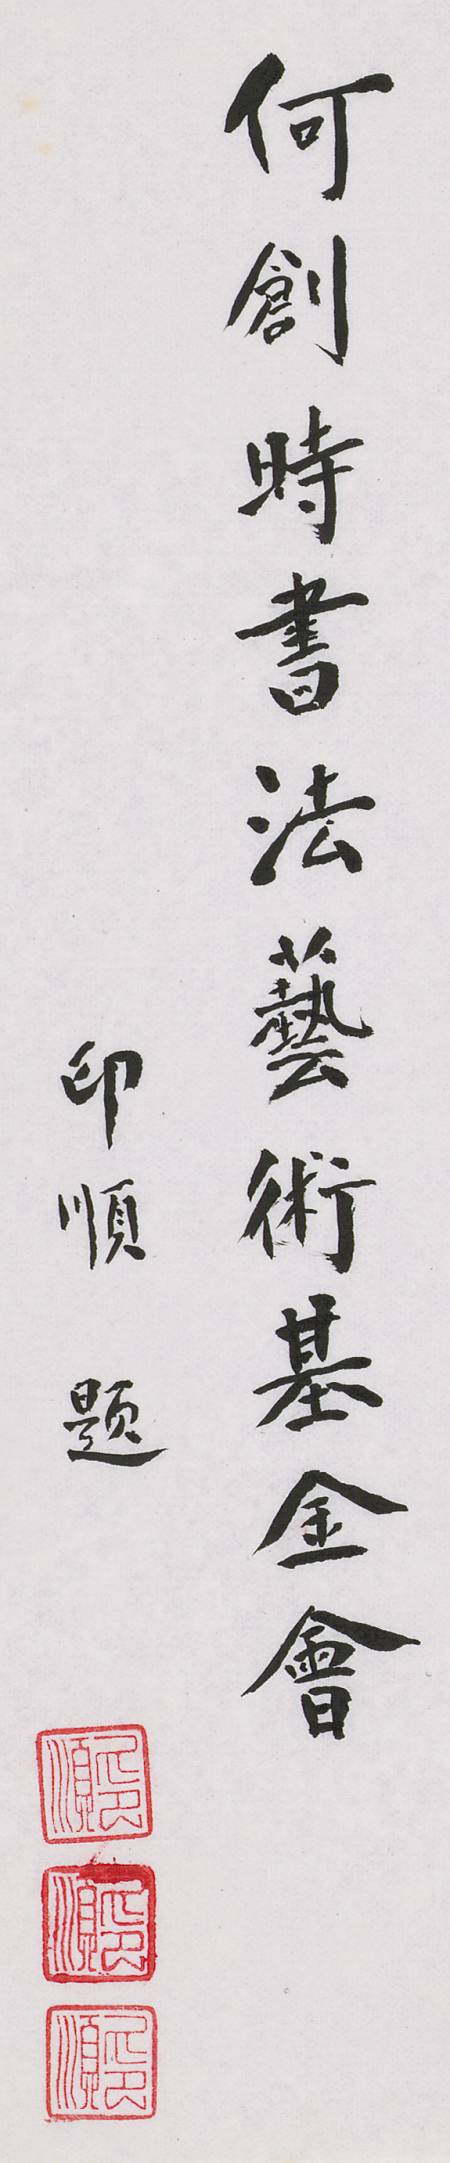 何創時書法藝術基金會
印順 題
印順
印順
印順